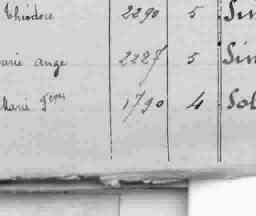 Théodore 2290 5 Sin
Marie ange 2227 5 Sin
Marie 1790 4 Sol